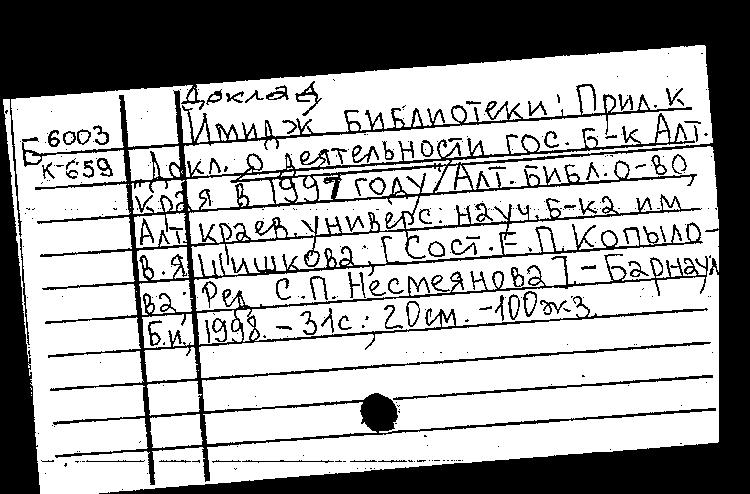 Доклад
Б 6003
К-659
Имидж библиотеки: Прил. к
Докл. "О деятельности гос. б-к Алт.
края в 1997 году"/Алт. библ. о-во,
Алт. краев. универс. науч. б-ка им
В.Я Шишкова; [Сост. Е.П. Копыло-
ва; Ред. С.П. Несмеянова]. - Барнаул
Б.и., 1998. - 31с.; 20см. - 100экз.